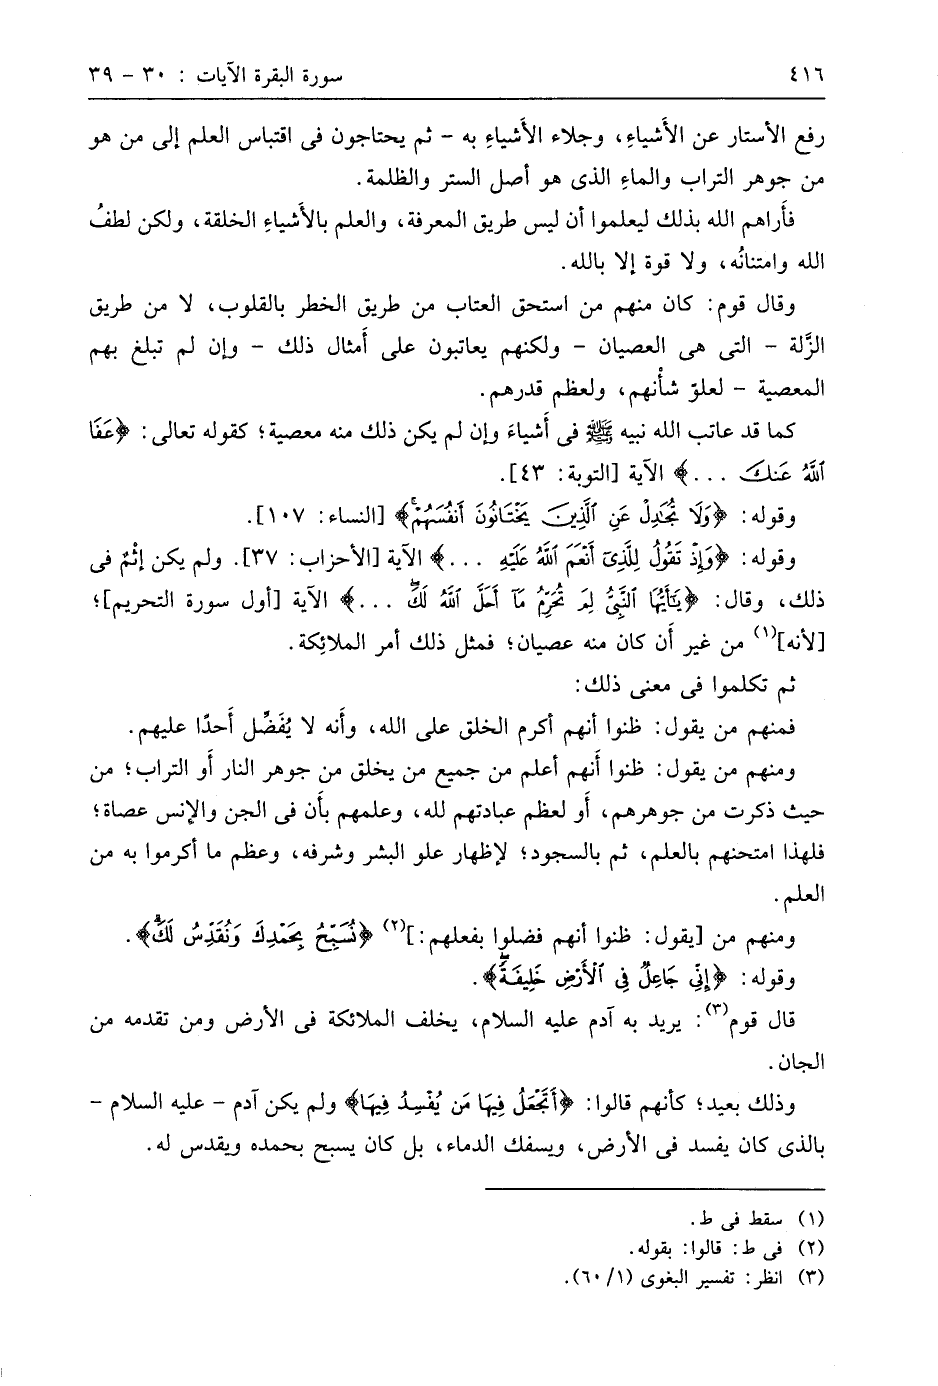 ٤١٦ سورة البقرة الآيات : ٣٠ - ٣٩
رفع الأستار عن الأشياءِ، وجلاء الأشياءِ به - ثم يحتاجون فى اقتباس العلم إلى من هو
من جوهر التراب والماءِ الذى هو أصل الستر والظلمة.
فأَراهم الله بذلك ليعلموا أن ليس طريق المعرفة، والعلم بالأشياءِ الخلقة، ولكن لطفُ
الله وامتنانُه، ولا قوة إلا بالله.
وقال قوم: كان منهم من استحق العتاب من طريق الخطر بالقلوب، لا من طريق
الزَّلة - التى هى العصيان - ولكنهم يعاتبون على أَمثال ذلك - وإن لم تبلغ بهم
المعصية - لعلوّ شأْنهم، ولعظم قدرهم.
كما قد عاتب الله نبيه ﷺ فى أَشياءَ وإن لم يكن ذلك منه معصية؛ كقوله تعالى: ﴿عَفَا
ٱللَّهُ عَنكَ ...﴾ الآية [التوبة: ٤٣].
وقوله: ﴿وَلَا تُجَٰدِلْ عَنِ ٱلَّذِينَ يَخْتَانُونَ أَنفُسَهُمْۚ﴾ [النساء: ١٠٧].
وقوله: ﴿وَإِذْ تَقُولُ لِلَّذِىٓ أَنْعَمَ ٱللَّهُ عَلَيْهِ ...﴾ الآية [الأحزاب: ٣٧]. ولم يكن إثْمٌ فى
ذلك، وقال: ﴿يَٰٓأَيُّهَا ٱلنَّبِىُّ لِمَ تُحَرِّمُ مَآ أَحَلَّ ٱللَّهُ لَكَۖ ...﴾ الآية [أول سورة التحريم]؛
[لأنه](١) من غير أَن كان منه عصيان؛ فمثل ذلك أمر الملائِكة.
ثم تكلموا فى معنى ذلك:
فمنهم من يقول: ظنوا أنهم أكرم الخلق على الله، وأنه لا يُفَضِّل أَحدًا عليهم.
ومنهم من يقول: ظنوا أَنهم أعلم من جميع من يخلق من جوهر النار أَو التراب؛ من
حيث ذكرت من جوهرهم، أَو لعظم عبادتهم لله، وعلمهم بأَن فى الجن والإنس عصاة؛
فلهذا امتحنهم بالعلم، ثم بالسجود؛ لإظهار علو البشر وشرفه، وعظم ما أكرموا به من
العلم.
ومنهم من [يقول: ظنوا أنهم فضلوا بفعلهم:](٢) ﴿نُسَبِّحُ بِحَمْدِكَ وَنُقَدِّسُ لَكَۖ﴾.
وقوله: ﴿إِنِّى جَاعِلٌ فِى ٱلْأَرْضِ خَلِيفَةًۖ﴾.
قال قوم(٣): يريد به آدم عليه السلام، يخلف الملائكة فى الأرض ومن تقدمه من
الجان.
وذلك بعيد؛ كأنهم قالوا: ﴿أَتَجْعَلُ فِيهَا مَن يُفْسِدُ فِيهَا﴾ ولم يكن آدم - عليه السلام -
بالذى كان يفسد فى الأرض، ويسفك الدماء، بل كان يسبح بحمده ويقدس له.
(١) سقط فى ط.
(٢) فى ط: قالوا: بقوله.
(٣) انظر: تفسير البغوى (١/ ٦٠).